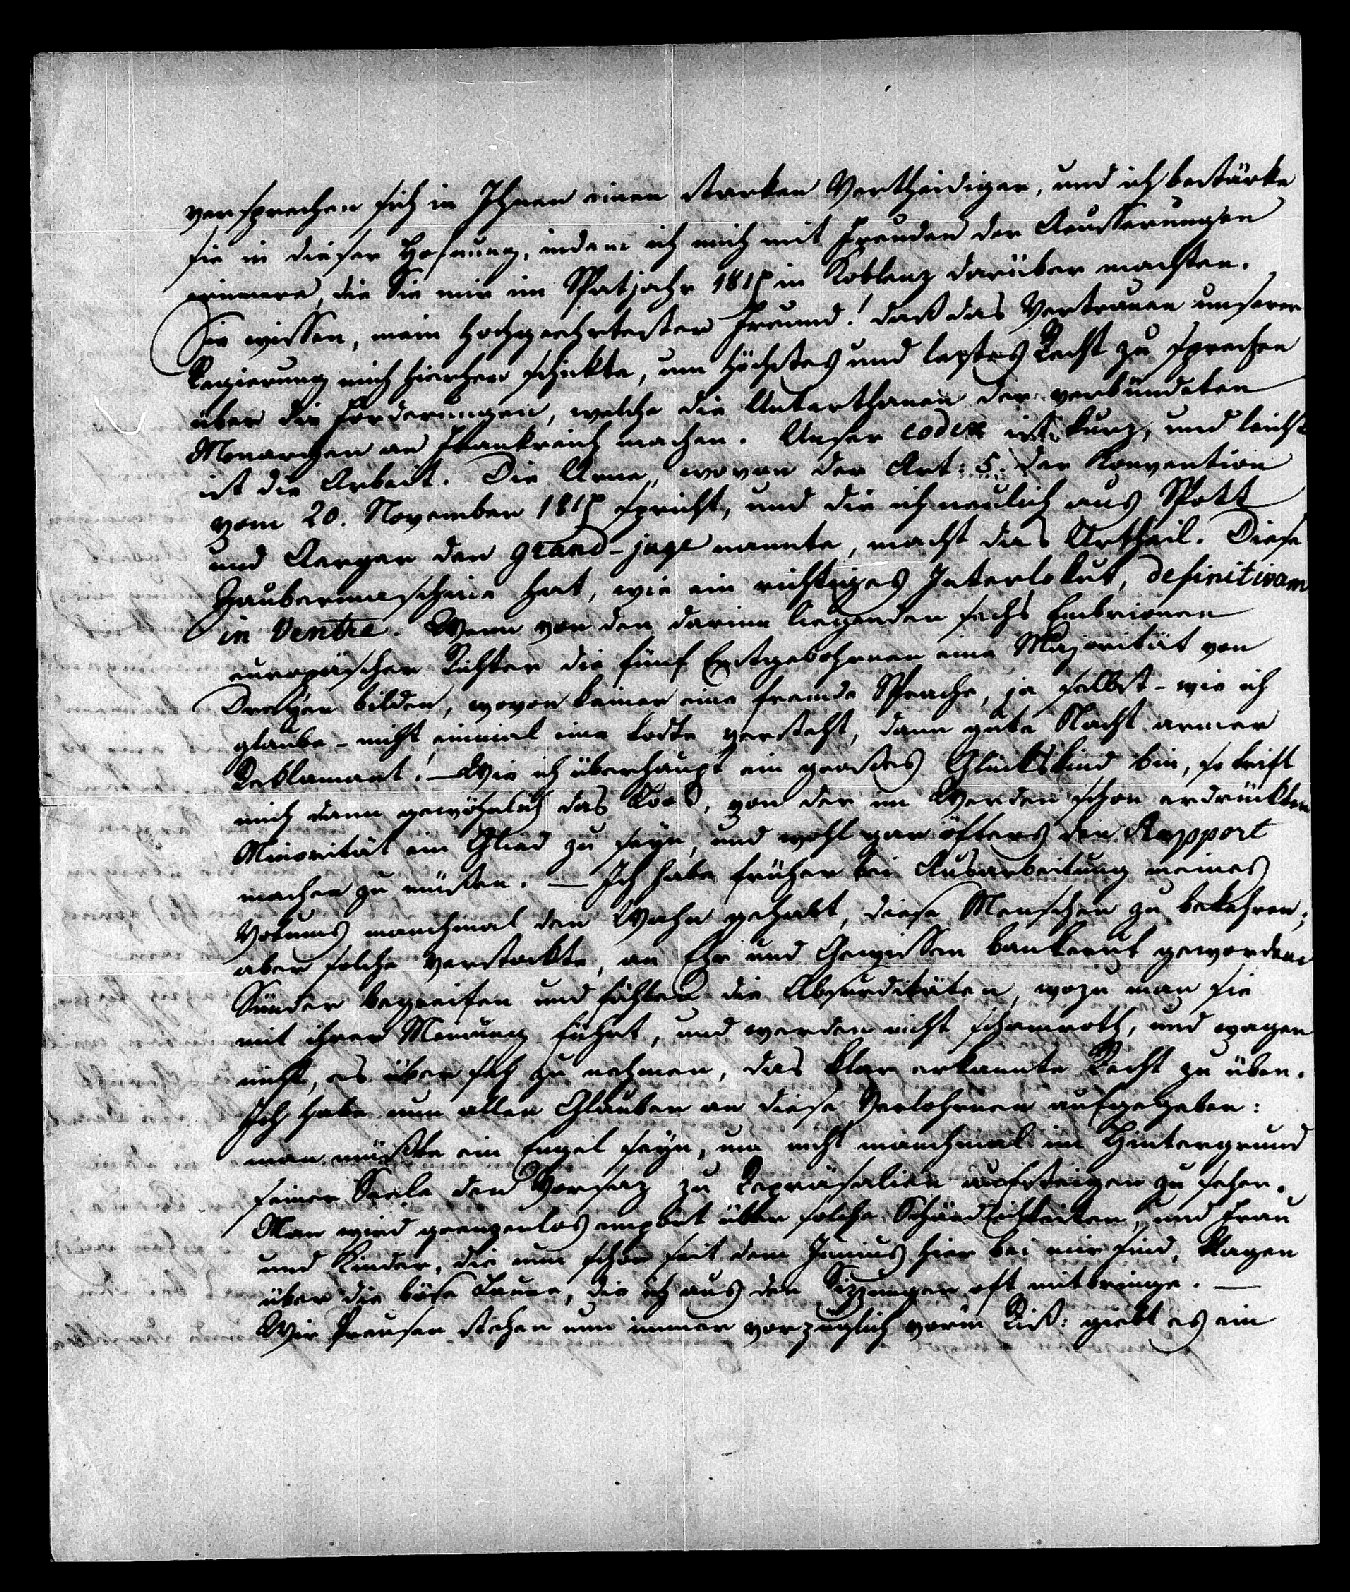 versprechen sich in Ihnen einen starken Vertheidiger, und ich bestärke
sie in dieser Hofnung, indem ich mich mit Freuden der Aeusserungen
erinnere, die Sie mir im Spatjahr 1817 in Koblenz darüber machten.
Sie wissen, mein Hochgeehrtester Freund! daß das Vertrauen unserer
Regierung mich hierher schikte, um höchstes und leztes Recht zu sprechen
über die Forderungen, welche die Unterthanen der verbündeten
Monarchen an Frankreich machen. Unser codex ist kurz, und leicht
ist die Arbeit. Die Urne, wovon der Art: 5. der Konvention
vom 20. November 181 spricht, und die ich neulich aus Spott
und Aerger den grand-juge nannte, macht das Urtheil. Diese
Zaubermaschine hat, wie ein richtiges Interlokut, definitivam
in Ventre. Wenn von den darinn liegenden sechs Embrionen
europäscher Richter die fünf Erstgebohrnen eine Majorität von
Dreÿen bilden, wovon keiner eine fremde Sprache, ja selbst - wie ich
glaube - nicht einmal eine todte versteht, dann gute Nacht armer
Reklamant! - Wie ich überhaupt ein großes Glückskind bin, so trift
mich dann gewöhnlich das Loos, von der im Werden schon erdrückten
Minorität ein Glied zu seyn, und wohl gar öfters den Rapport
machen zu müssen. — Ich habe früher bei Ausarbeitung meines
Votums manchmal den Wahn gehabt, diese Menschen zu bekehren;
aber solche verstockte, an Ehr und Gewissen bankerut gewordene
Sünder begreifen und fühlen die Absurditäten, wozu man sie
mit ihrer Meinung führt, und werden nicht schamroth, und wagen
nicht, es über sich zu nehmen, das klar erkannte Recht zu üben.
Ich habe nun allen Glauben an diese Verlohrnen aufgegeben:
man müßte ein Engel seyn, um nicht manchmal im Hintergrund
seiner Seele den Vorsaz zu Repräsalien aufsteigen zu sehen.
Man wird grenzenlos empört über solche Schändlichkeiten, und Frau
und Kinder, die nun schon seit dem Junius hier bei mir sind, klagen
über die böse Laune, die ich aus den Sizzungen oft mitbringe. —
Wir Preusen stehen nun immer vorzüglich vorm Riß: giebt es ein